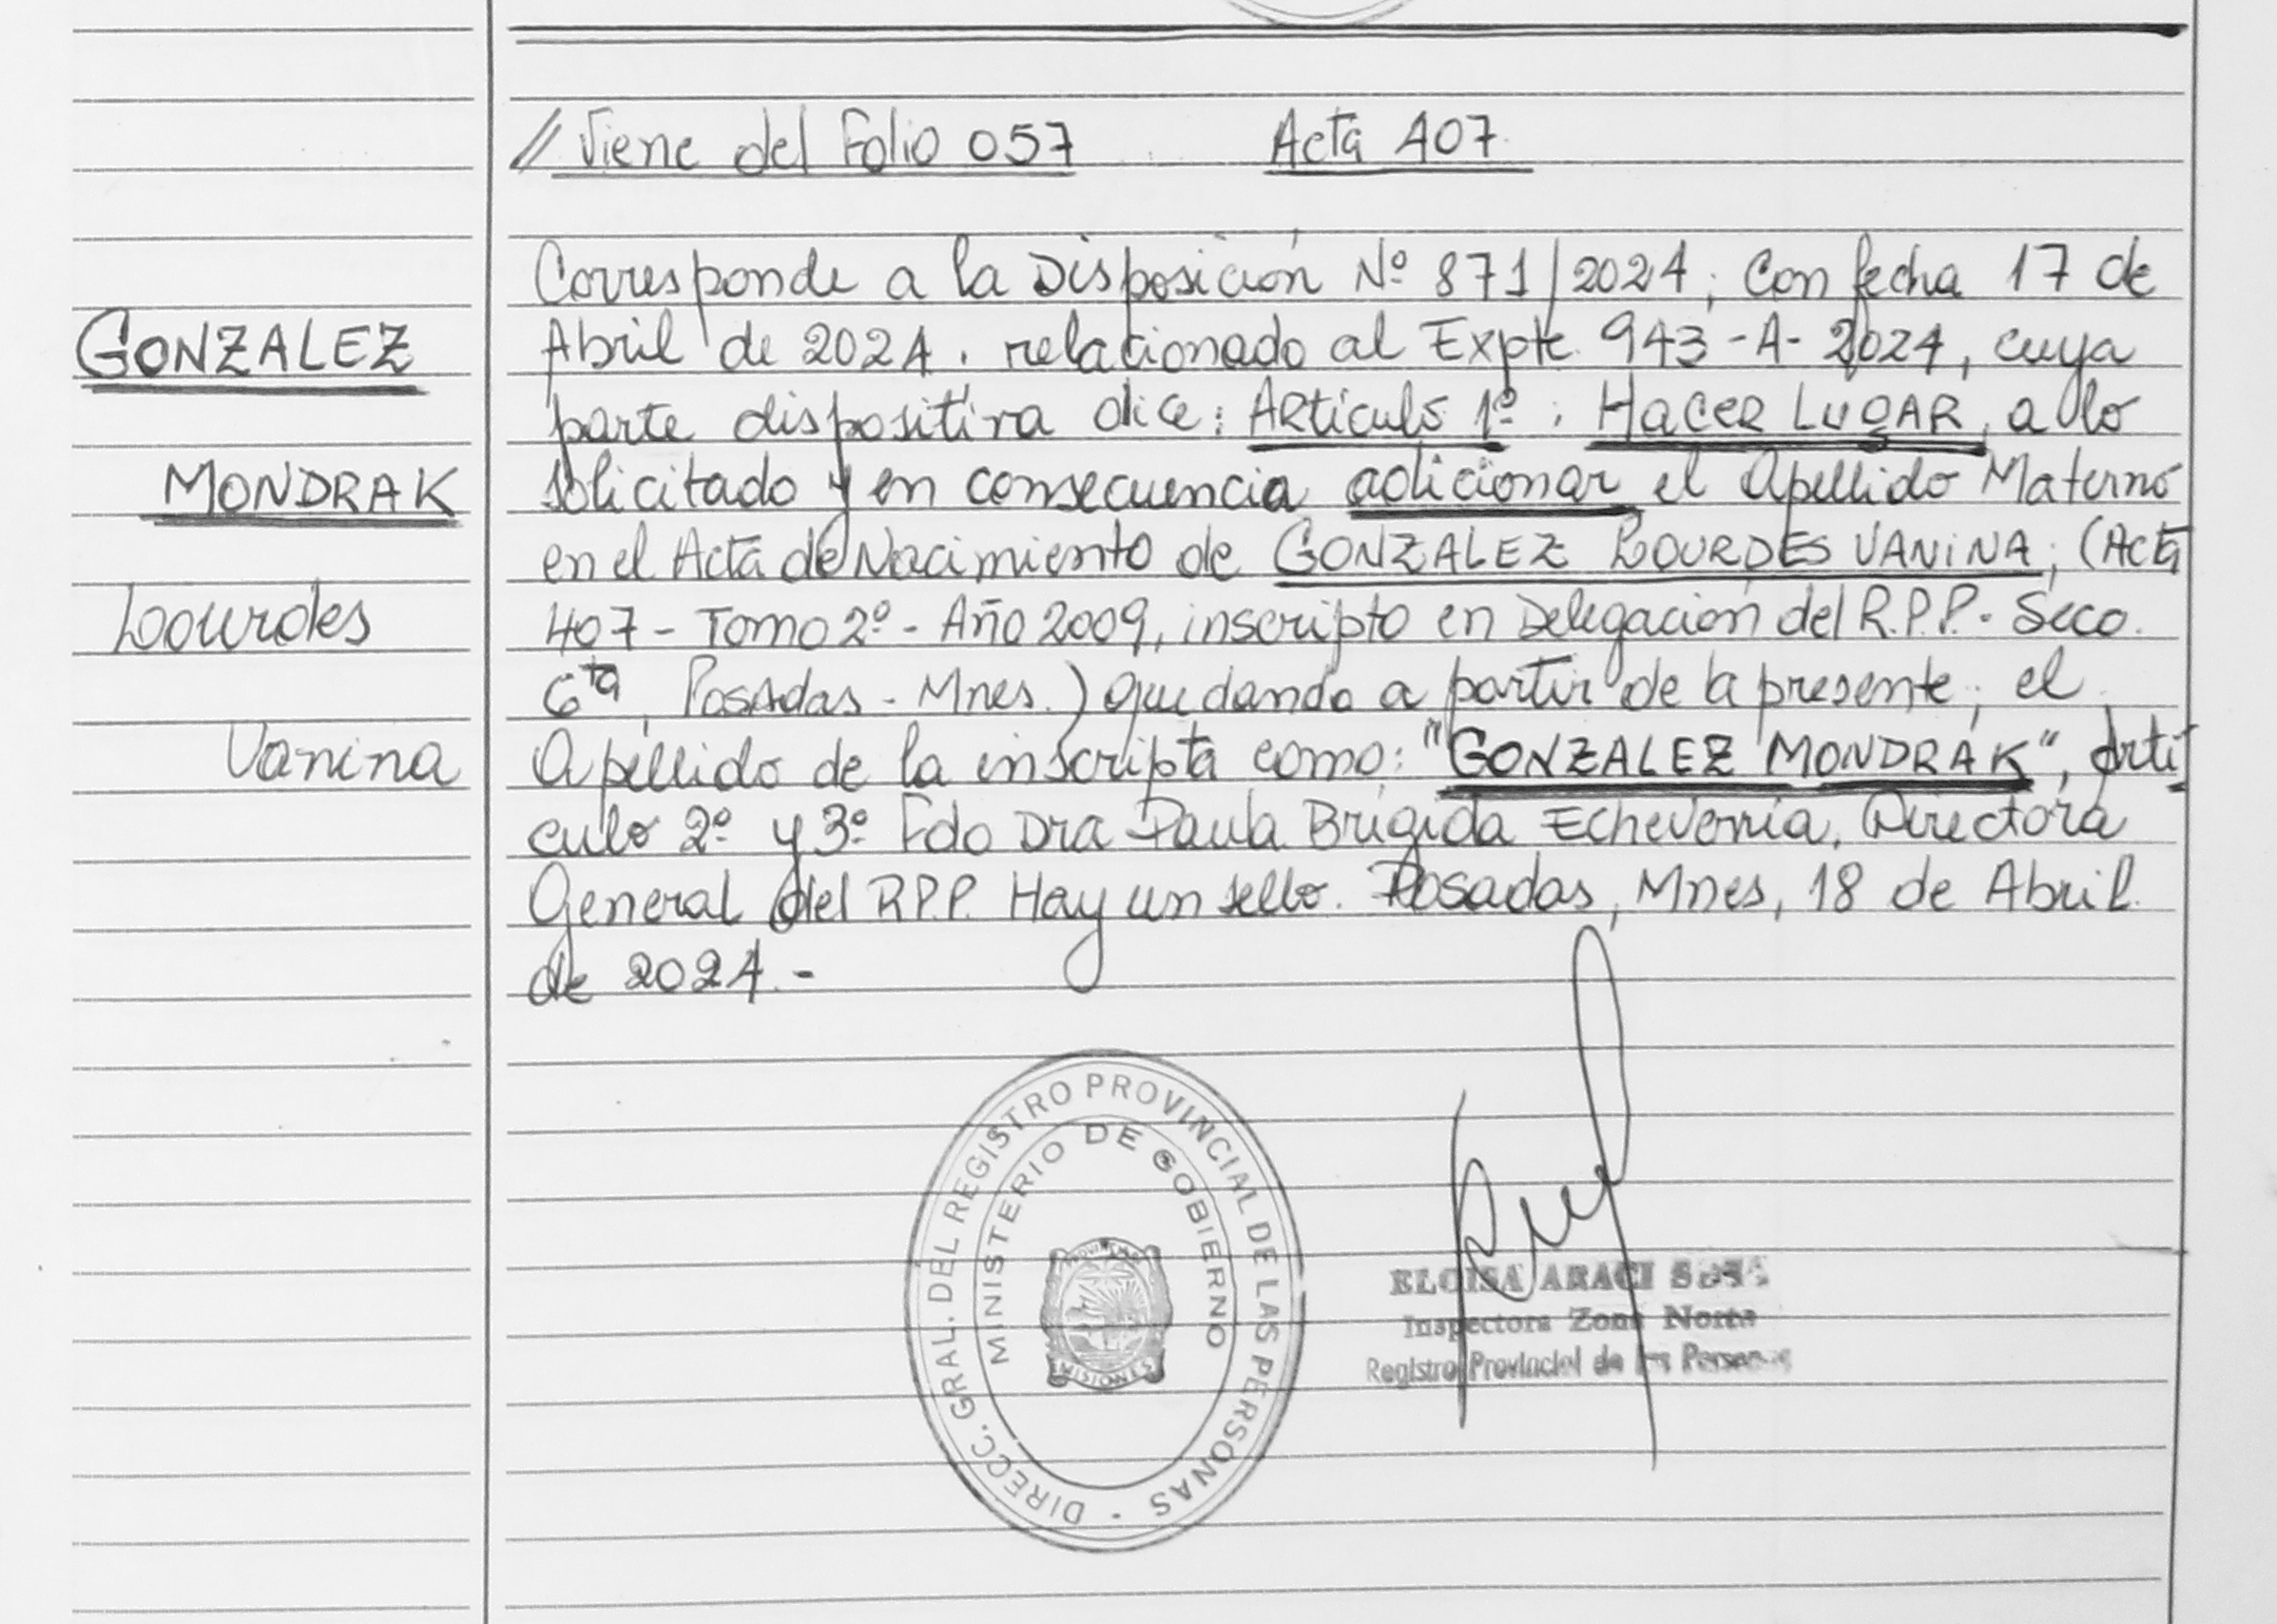 // Viene del Folio 057 Acta 407
Corresponde a la Disposición Nº 871/2024; Con fecha 17 de
Abril de 2024. relacionado al Expte 943-A-2024, cuya
parte dispositiva dice: ARtículo 1º. HACER LUGAR, a lo
solicitado y en consecuencia adicionar el Apellido Materno
en el Acta de Nacimiento de GONZALEZ LOURDES VANINA; (Acta
407 - Tomo 2º - Año 2009, inscripto en Delegación del R.P.P. - Secc.
6ta, Posadas - Mnes.) quedando a partir de la presente; el
Apellido de la inscripta como: "GONZALEZ MONDRAK", Artí
culo 2º y 3º Fdo Dra Paula Brígida Echeverria, Directora
General del R.P.P. Hay un sello. Posadas, Mnes, 18 de Abril
de 2024.-
GONZALEZ
MONDRAK
Lourdes
Vanina
DIRECC. GRAL. DEL REGISTRO PROVINCIAL DE LAS PERSONAS -
MINISTERIO DE GOBIERNO
MISIONES
ELOISA ARACI
Inspectora Zona Norte
Registro Provincial de